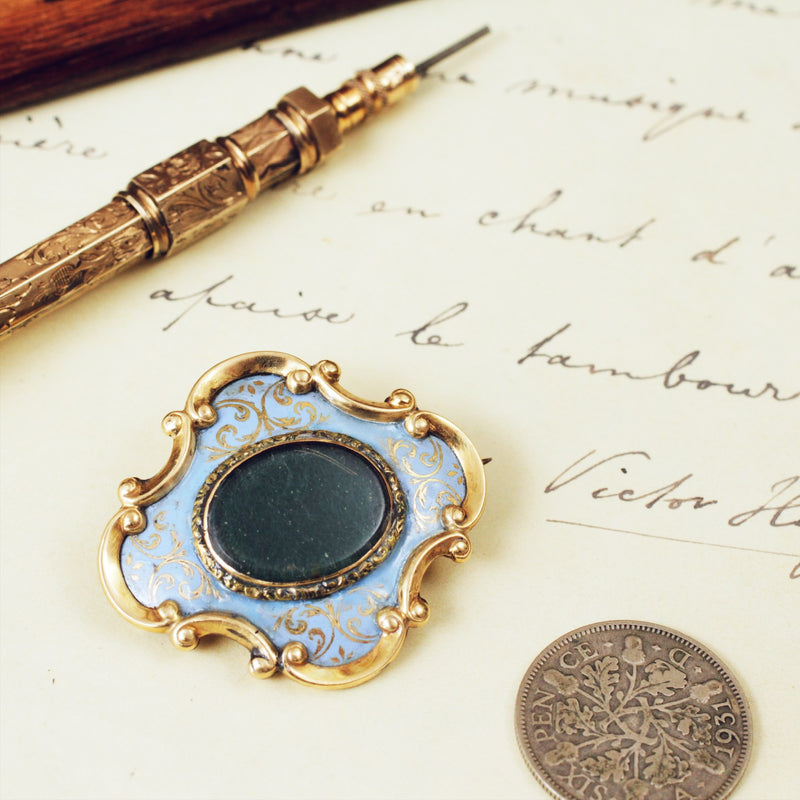 musique
ière
re en chant d'a
apaise le tambour
Victor
SIXPENCE
A.D
1931